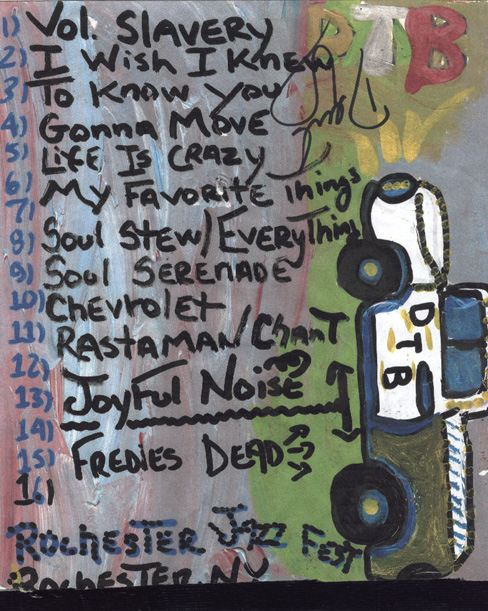 DTB
1) Vol. SLAVERY
2) I WISH I KNEW
3) To KNOW You
4) GONNA MOVE
5) LIFE IS CRAZY
6) MY FAVORITE things
7)
8) Soul STEW/EVERYTHING
9) Soul SERENADE
10) CHEVROLET
11) RASTAMAN/CHANT
12)
13) JoyFul NoisE
14)
15) FREDIES DEAD
16)
DTB
ROCHESTER JAZZ FEST
ROCHESTER, NY